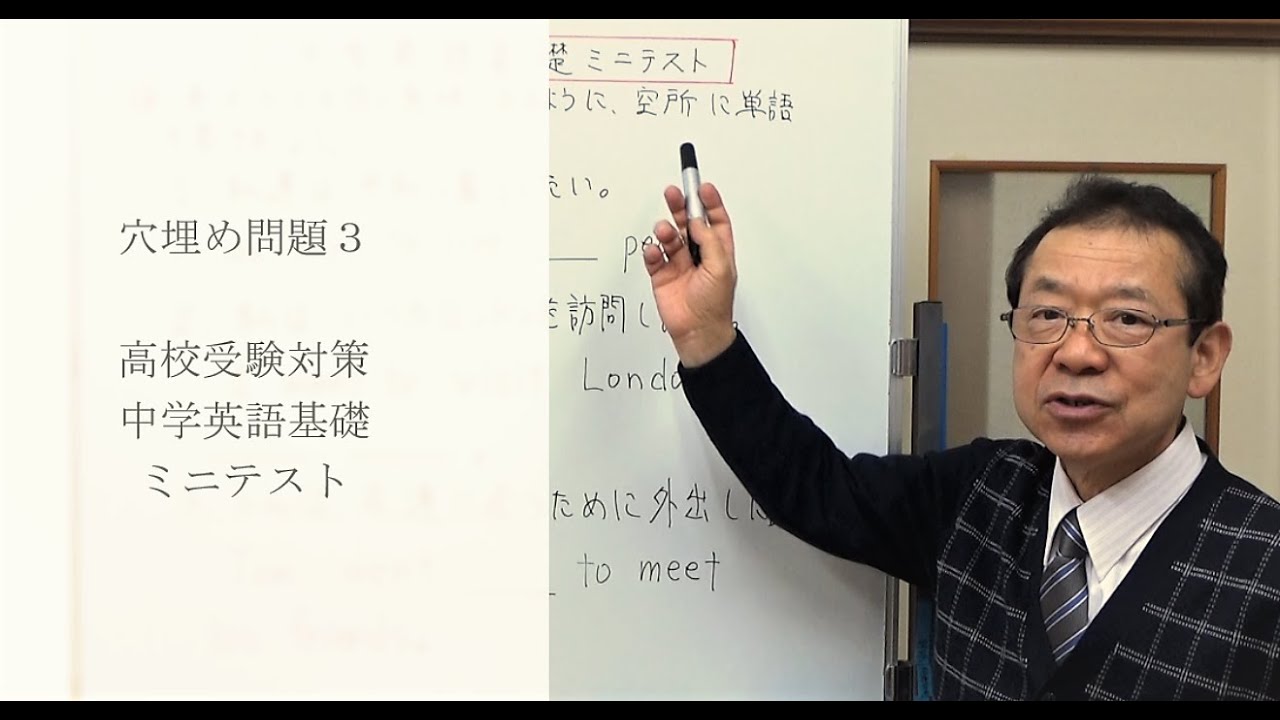 穴埋め問題３
高校受験対策
中学英語基礎
ミニテスト
礎ミニテスト
ように、空所に単語
たい。
London
ために外出した
to meet